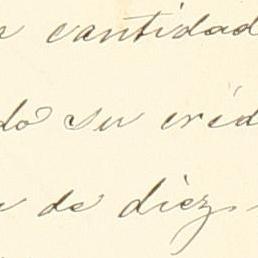 cantidad
do su créd
de diez